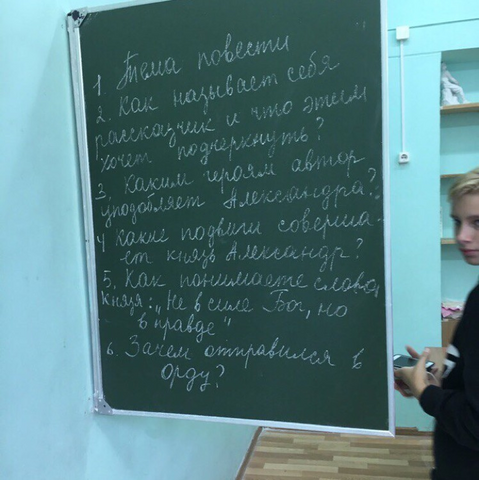 1. Тема повести
2. Как называет себя
рассказчик и что этим
хочет подчеркнуть?
3. Каким героям автор
уподобляет Александра?
4 Какие подвиги соверша-
ет князь Александр?
5. Как понимаете слова
князя: „Не в силе Бог, но
в правде"
6. Зачем отправился в
орду?